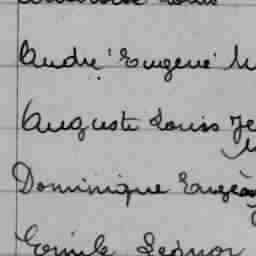 André Eugène
Auguste Louis Je
Dominique Eugè
Emile Léonor